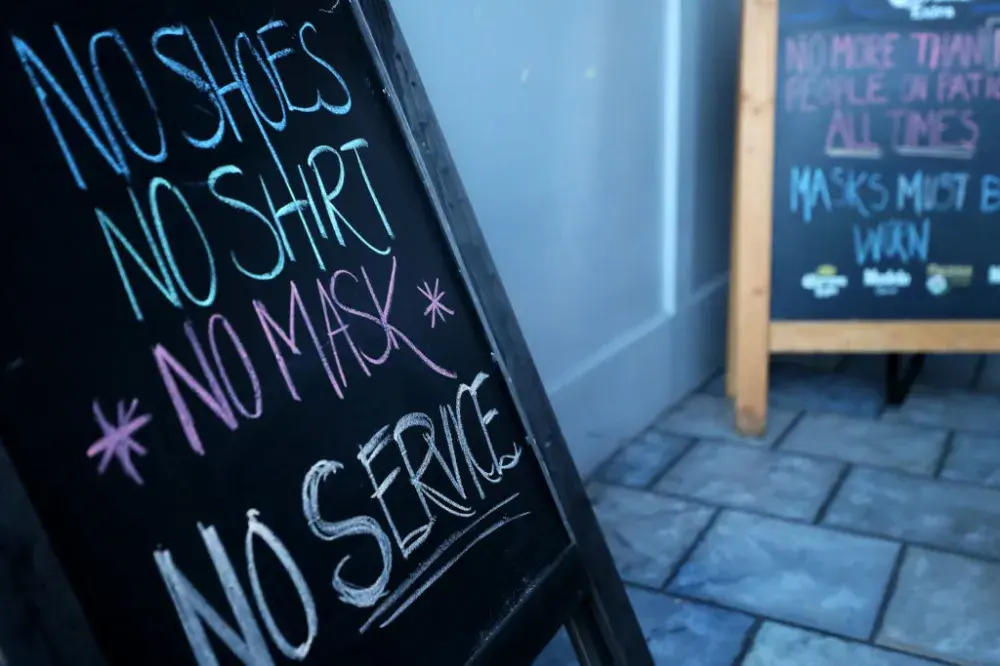 NO SHOES
NO SHIRT
*NO MASK*
NO SERVICE
NO MORE THAN
PEOPLE ON
ALL TIMES
MASKS MUST
WORN
Corona
Modelo